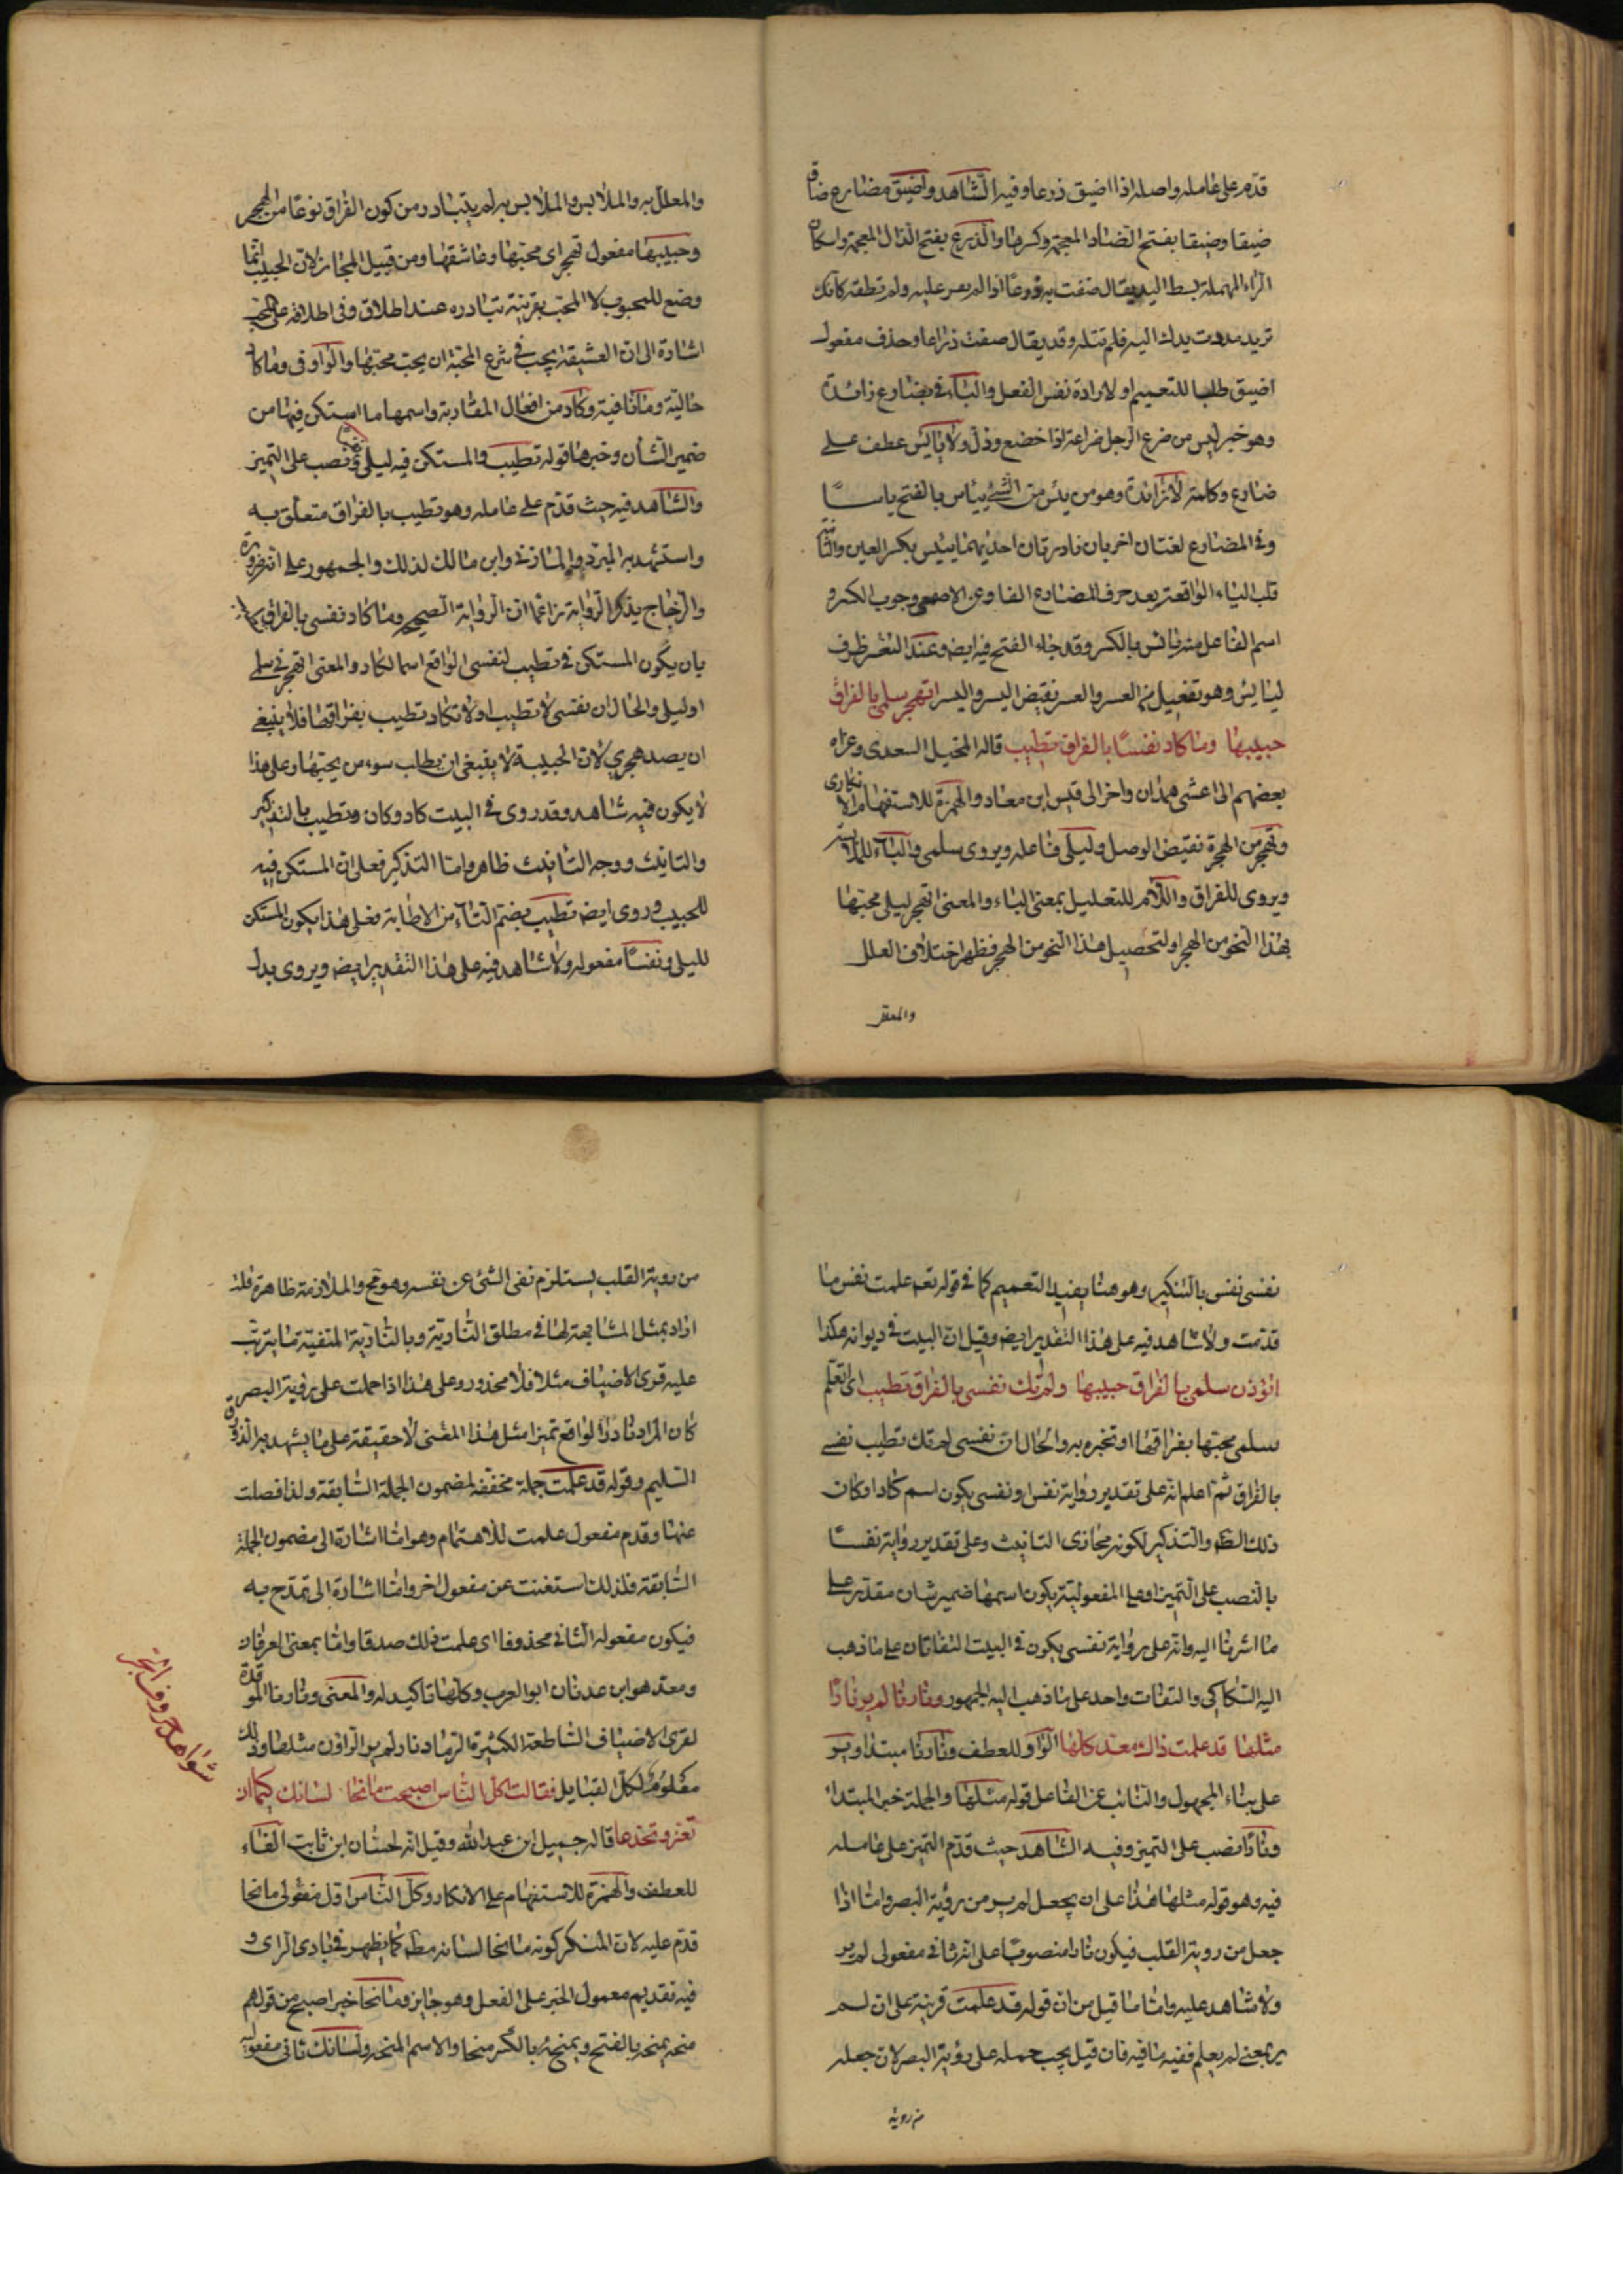 قدم على عامله واصله اذا اضيق ذرعا وفيه الشاهد واضيق مضارع ضاق
ضيقا وضيقا بفتح الضاد المعجمة وكسرها والذرع بفتح الذال المعجمة واسكان
الراء المهملة بسط اليد يقال ضقت به ذرعا اذا لم عليه ولم تطقه كانك
تريد مددت يدك اليه فلم تنله وقد يقال ضقت ذراعا وحذف مفعول
اضيق طلبا للتعميم او لارادة نفس الفعل والباء في بضارع زائدة
وهو خبر ليس من ضرع الرجل ضراعة اذا خضع وذل ولا يائس عطف على
ضارع وكلمة لا زائدة وهو من يئس من الشئ ييئاس بالفتح ياسا
وفي المضارع لغتان اخريان نادرتان احديهما ييئس بكسر العين والثانية
قلب الياء الواقعة بعد حرف المضارع الفا وعن الاصمعي وجوب الكسر و
اسم الفاعل منه يائس بالكسر وقد جاء الفتح فيه ايضا وعند التعسر ظرف
ليائس وهو تفعيل من العسر والعسر نقيض اليسر واليسر اتهجر سلمى بالفراق
حبيبها وما كاد نفسا بالفراق تطيب قاله المخبل السعدي وعزاه
بعضهم الى اعشى همدان واخر الى قيس ابن معاد والهمزة للاستفهام الانكارى
وتهجر من الهجرة نقيض الوصل وليلى فاعله ويروى سلمى والباء للملابسة
ويروى للفراق واللام للتعليل بمعنى الباء والمعنى اتهجر ليلى محبتها
بهذا النحو من الهجر او لتحصيل هذا النحو من الهجر فظهر اختلاف العلل
والمعلل
والمعلل به والملابس والملابس به لم يتبادر من كون الفراق نوعا من الهجر
وحبيبها مفعول تهجر اى محبتها وعاشقها ومن قبيل المجاز لان الحبيب انما
وضع للمحبوب لا المحب بقرينة تبادره عند اطلاق وفي اطلاقه على المحب
اشارة الى ان العشيقة يجب في شرع المحبة ان يحب محبتها والواو في وما كاد
حالية وما نافية وكاد من افعال المقاربة واسمها ما استكن فيها من
ضمير الشأن وخبرها قوله تطيب والمستكن فيه ليلى ونصب على التميز
والشاهد فيه حيث قدم على عامله وهو تطيب بالفراق متعلق به
واستشهد به المبرد والمازني وابن مالك لذلك والجمهور على انه ضرورة
والزجاج يذكر الرواية زاعما ان الرواية الصحيحة وما كاد نفسي بالفراق
بان يكون المستكن في تطيب لنفسي الواقع اسما لكاد والمعنى اتهجر في سلمى
او ليلى والحال ان نفسي لا تطيب اولا تكاد تطيب بفراقها فلا ينبغي
ان يصد هجري لان الحبيبة لا ينبغي ان يطلب سوء من يحبتها وعلى هذا
لا يكون فيه شاهد وقد روى في البيت كاد وكان وتطيب بالتذكير
والتانيث ووجه التانيث ظاهر واما التذكير فعلى ان المستكن فيه
للحبيب وروى ايضا تطيب بضم التاء من الاطابة فعلى هذا يكون المستكن
لليلى ونفسا مفعوله ولا شاهد فيه على هذا التقدير ايضا ويروى بدل
نفسي نفس بالتنكير وهو هنا يفيد التعميم كما في قوله تعه علمت نفس ما
قدمت ولا شاهد فيه على هذا التقدير ايضا وقيل ان البيت في ديوانه هكذا
اتؤذن سلمى بالفراق حبيبها ولم تك نفسي بالفراق تطيب اى اتعلم
سلمى محبتها بفراقها او تخبره به والحال ان نفسي لم تك تطيب نفسي
بالفراق ثم اعلم انه على تقدير رواية نفس او نفسي يكون اسم كاد او كان
ذلك الظاهر والتذكير لكونه مجازى التانيث وعلى تقدير رواية نفسا
بالنصب على التميز او على المفعولية يكون اسمها ضمير شان مقدر على
ما اشرنا اليه وانه على رواية نفسي يكون في البيت التفاتان على ما ذهب
اليه السكاكي والتفات واحد على ما ذهب اليه الجمهور ونارنا لم ير نارا
مثلها قد علمت ذاك معد كلها الواو للعطف ونارنا مبتدا وير
على بناء المجهول والنائب عن الفاعل قوله مثلها والجملة خبر المبتدا
ونارا نصب على التميز وفيه الشاهد حيث قدم التميز على عامله
فيه وهو قوله مثلها هذا على ان يجعل لم ير من رؤية البصر واما اذا
جعل من روية القلب فيكون نارا منصوبا على انه ثاني مفعولى لم ير
ولا شاهد عليه واما ما قيل من ان قوله قد علمت قرينة على ان لم
ير بمعنى لم يعلم ففيه ما فيه فان قيل يجب حمله على رؤية البصر لان جعله
من روية
من روية القلب يستلزم نفي الشئ عن نفسه وهو مح والملازمة ظاهرة قلنا
اراد بمثل المشابهة لها في مطلق النارية وبالنارية المنفية ما يترتب
عليه قرى الاضياف مثلا فلا محذور وعلى هذا اذا حملت على رؤية البصر
كان المراد نارا الواقع تميزا مثل هذا المعنى لا حقيقة على ما يشهد به الذوق
السليم وقوله قد علمت جملة محققة لمضمون الجملة السابقة ولذا فصلت
عنها وقدم مفعول علمت للاهتمام وهو اما اشارة الى مضمون الجملة
السابقة فلذلك استغنت عن مفعول اخر واما اشارة الى تمدح به
فيكون مفعوله الثاني محذوفا اى علمت ذلك صدقا واما بمعنى العرفان
ومعد هو ابن عدنان ابو العرب وكلها تاكيد له والمعنى ونارنا الموقدة
لقرى الاضياف الساطعة الكثيرة الرماد نار لم ير الراؤن مثلها وذلك
معلوم لكل القبايل فقالت اكل الناس اصبحت مانحا لسانك كيما ان
تغر وتخدعا قاله جميل ابن عبد الله وقيل انه لحسان ابن ثابت الفاء
للعطف والهمزة للاستفهام على الانكار وكل الناس اول مفعولى مانحا
قدم عليه لان المنكر كونه مانحا لسانه كما يظهر في بادى الراى و
فيه تقديم معمول الخبر على الفعل وهو جايز ومانحا خبر اصبح من قولهم
منحه يمنحه بالفتح ويمنحه بالكسر منحا والاسم المنحة ولسانك ثاني مفعوليه
شواهد حروف الجر